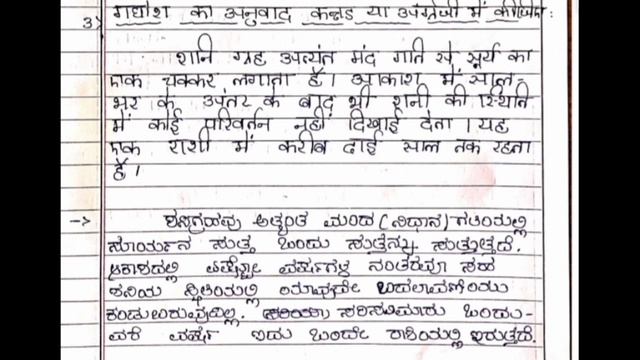 3) गद्यांश का अनुवाद कन्नड या अंग्रेजी में कीजिए:
शनि ग्रह अत्यंत मंद गति से सूर्य का
एक चक्कर लगाता है। आकाश में साल-
भर के अंतर के बाद भी शनी की स्थिति
में कोई परिवर्तन नहीं दिखाई देता। यह
एक राशी में करीब ढाई साल तक रहता
है।
-> ಶನಿಗ್ರಹವು ಅತ್ಯಂತ ಮಂದ (ನಿಧಾನ) ಗತಿಯಲ್ಲಿ
ಸೂರ್ಯನ ಸುತ್ತ ಒಂದು ಸುತ್ತನ್ನು ಸುತ್ತುತ್ತದೆ.
ಆಕಾಶದಲ್ಲಿ ವರ್ಷಗಳ ನಂತರವೂ ಸಹ
ಶನಿಯ ಸ್ಥಿತಿಯಲ್ಲಿ ಯಾವುದೇ ಬದಲಾವಣೆಯು
ಕಂಡುಬರುವುದಿಲ್ಲ. ಸರಿಸುಮಾರು ಒಂದು-
ವರೆ ವರ್ಷ ಇದು ಒಂದೇ ರಾಶಿಯಲ್ಲಿ ಇರುತ್ತದೆ.